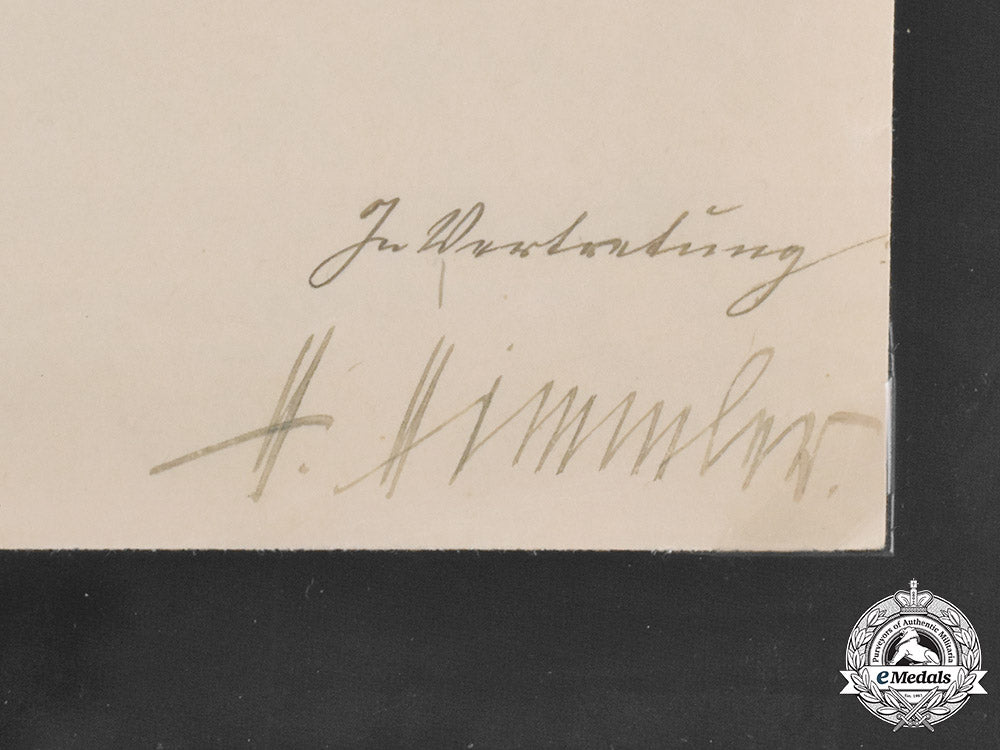 In Vertretung
H. Himmler.
Purveyors of Authentic Militaria
eMedals
Est. 1967